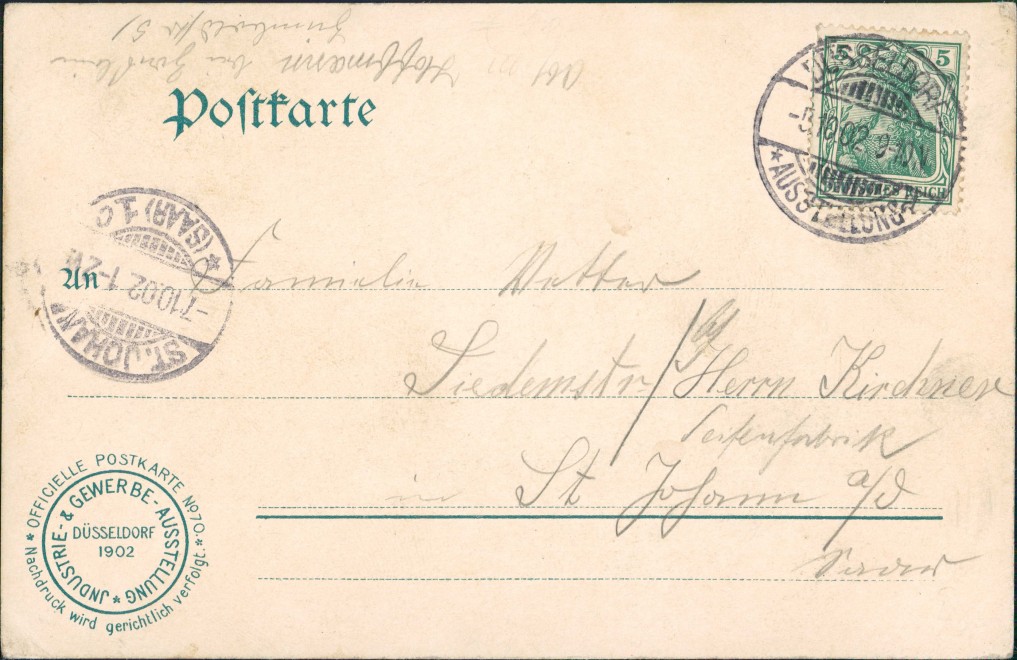 Postkarte
5 5
DEUTSCHES REICH
DÜSSELDORF
-5.10.02. 9-10N.
* AUSSTELLUNG *
ST. JOHANN
-7.10.02. 1-2N
* (SAAR) 1. c
An Familie Vetter
b/ Herrn Kirchner
Seifenfabrik
in St Johann a/d
Saar
* OFFICIELLE POSTKARTE No 70. *
Nachdruck wird gerichtlich verfolgt.
JNDUSTRIE- & GEWERBE-AUSSTELLUNG *
DÜSSELDORF
1902